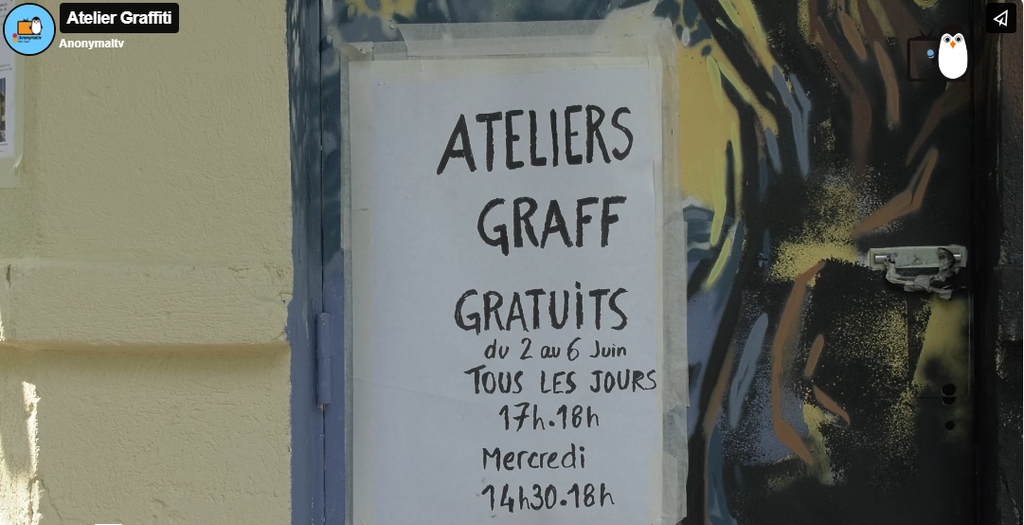 Atelier Graffiti
Anonymaltv
ATELIERS
GRAFF
GRATUiTS
du 2 au 6 Juin
TOUS LES JOURS
17h.18h
Mercredi
14h30.18h